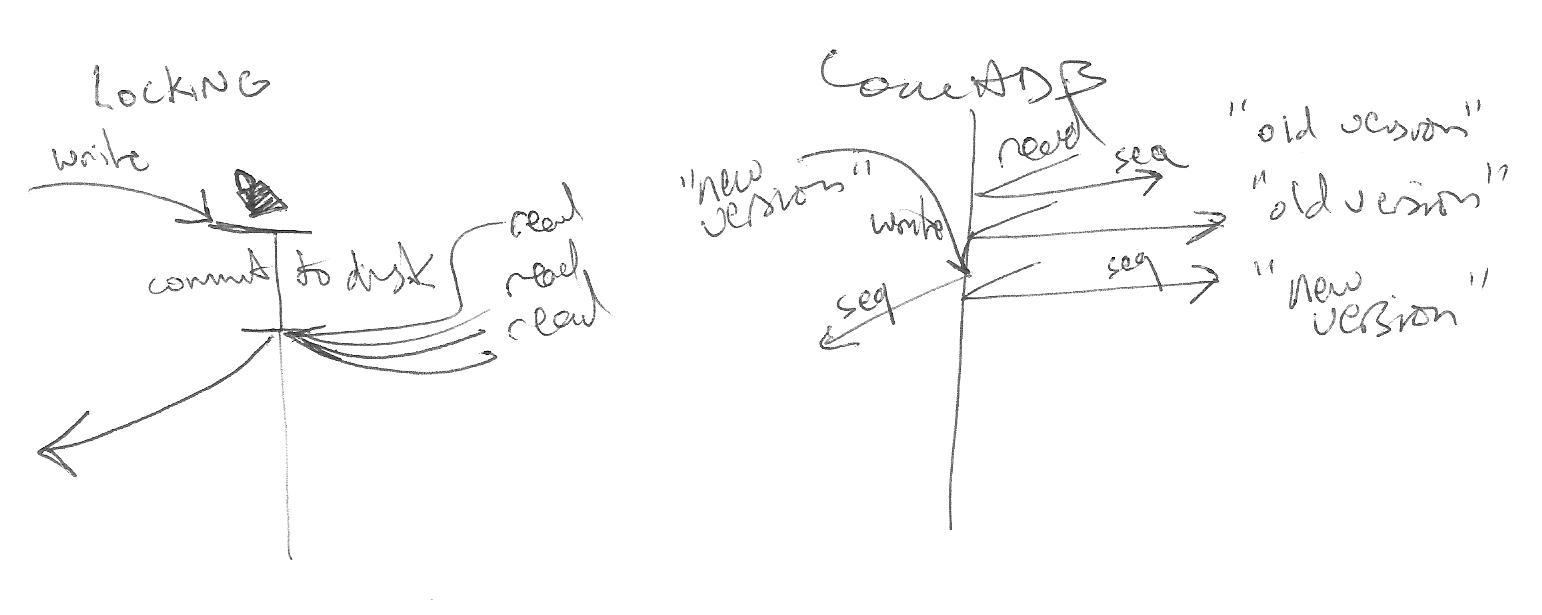 LOCKING
write
commit to disk
read
read
read
CouchDB
"new
version"
write
read
seq
seq
seq
"old version"
"old version"
"new
version"